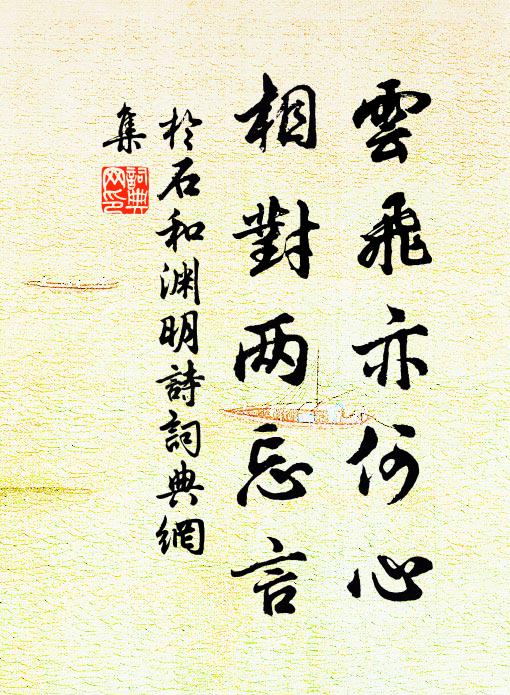 雲飛亦何心
相對两忘言
於石和渊明詩詞典網
集
詞典
网印